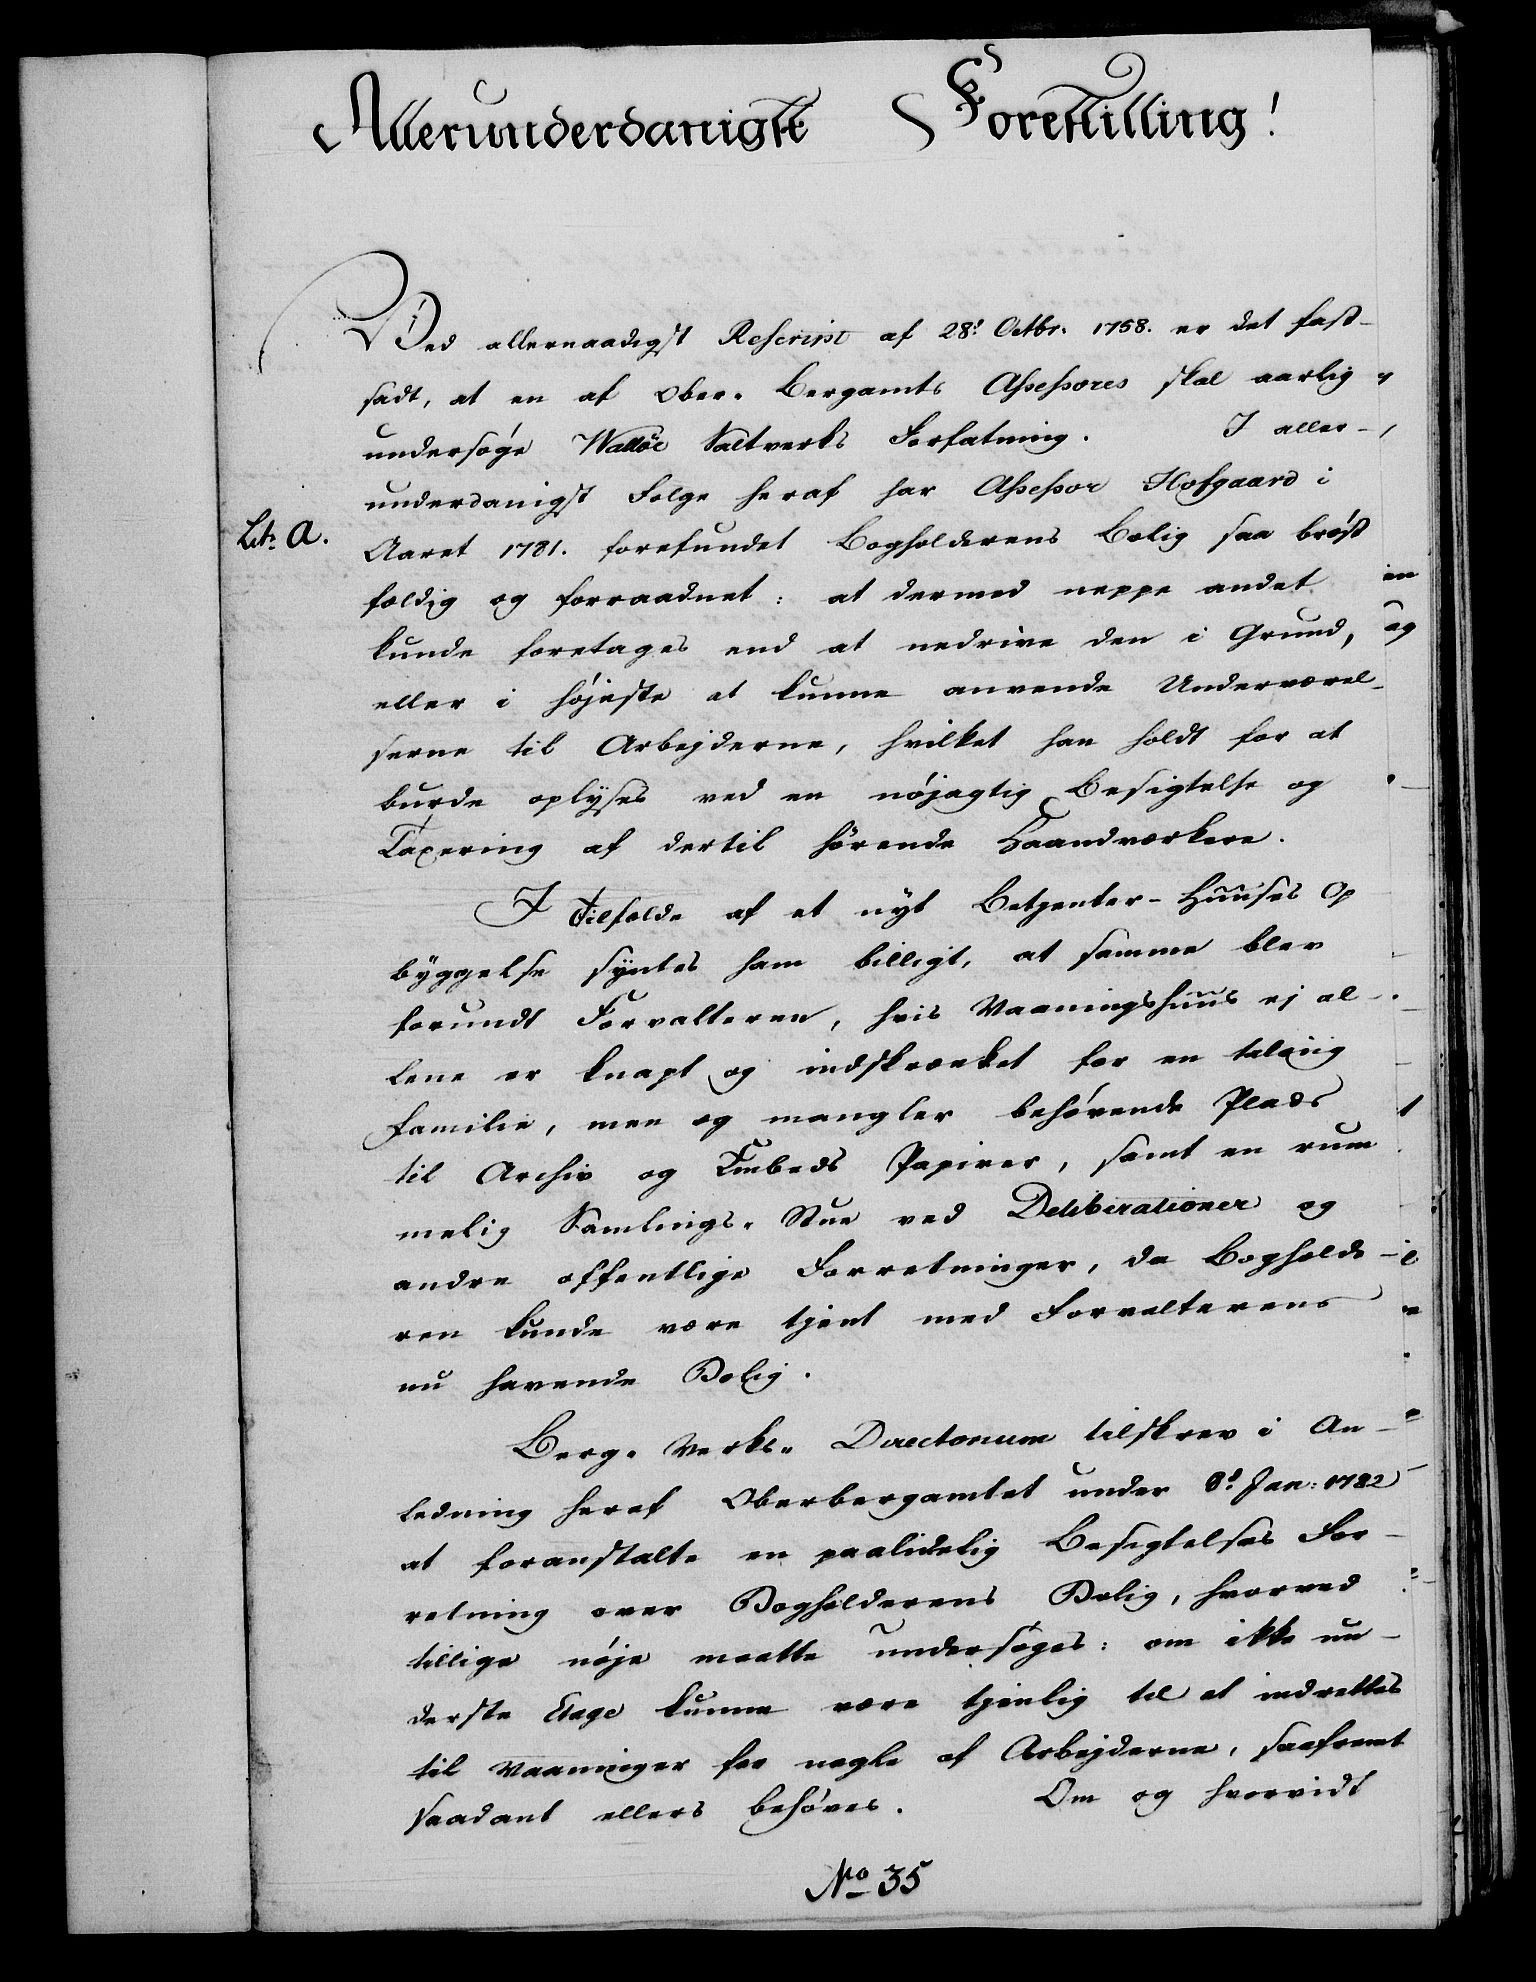 Allerunderdanigste Forestilling!
Ved allernaadigst Rescript af 28.' Octbr. 1758. er det fast-
sadt, at en af Ober- Bergamts Assessores skal aarlig
undersøge Walløe Saltverks Forfatning. I aller-
underdanigst Følge heraf har Assessor Hofgaard i
Litr. A.
Aaret 1781. forefundet Bogholderens Bolig saa brøst
fældig og forraadnet: at dermed neppe andet
kunde foretages end at nedrive den i Grund,
eller i højeste at kunne anvende Underværel-
serne til Arbejderne, hvilket han holdt for at
burde oplyses ved en nøjagtig Besigtelse og
Taxering af dertil hørende Haandværkere.
I Tilfælde af et nyt Betjenter-Huuses Op
byggelse syntes ham billigt, at samme blev
forundt Forvalteren, hvis Vaaningshuus ej al-
lene er knapt og indskrænket for en talriig
Familie, men og mangler behøvende Plads
til Archiv og Embeds Papirer, samt en rum
melig Samlings-Stue ved Deliberationer og
andre offentlige Forretninger, da Bogholde-
ren kunde være tjent med Forvalterens
nu havende Bolig.
Berg-Verks- Directorium tilskrev i An-
ledning heraf Oberbergamtet under 8.' Jan: 1782
at foranstalte en paalidelig Besigtelses For-
retning over Bogholderens Bolig, hvorved
tillige nøje maatte undersøges: om ikke un-
derste Etage kunne være tjenlig til at indrettes
til Vaaninger for nogle af Arbejderne, saafremt
saadant ellers behøves. Om og hvorvidt
No 35